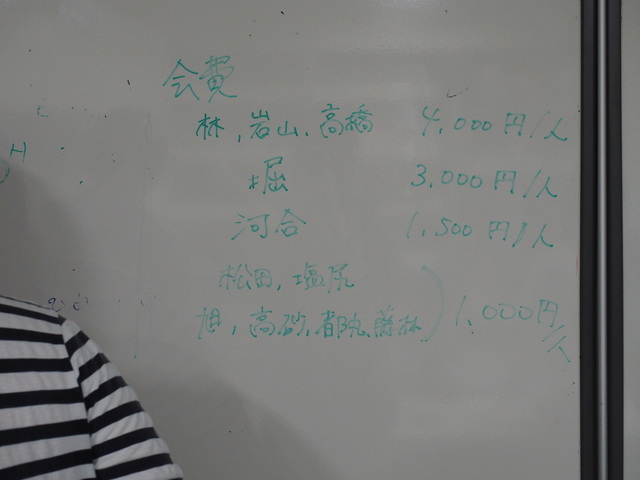 会費
林, 岩山, 高橋 4,000円/人
堀 3,000円/人
河合 1,500円/人
松田, 塩尻
旭, 高砂, 藤林 1,000円/人
H